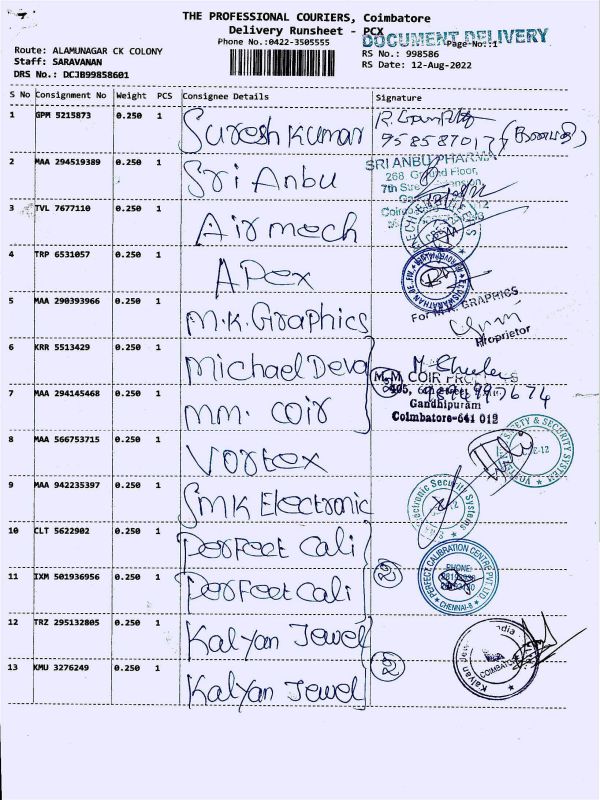 THE PROFESSIONAL COURIERS, Coimbatore
Delivery Runsheet - PCX
Phone No.:0422-3505555
DOCUMENT DELIVERY
Page-No.:1
Route: ALAMUNAGAR CK COLONY
Staff: SARAVANAN
DRS No.: DCJB99858601
RS No.: 998586
RS Date: 12-Aug-2022
S No Consignment No Weight PCS Consignee Details Signature
1 GPM 5215873 0.250 1 Suresh Kumar
2 MAA 294519389 0.250 1 Sri Anbu
SRI ANBU PHARMA
3 TVL 7677110 0.250 1 Airmech
4 TRP 6531057 0.250 1 Apex
5 MAA 290393966 0.250 1 M.K. Graphics
For M.K. GRAPHICS
Proprietor
6 KRR 5513429 0.250 1 Michael Deva
7 MAA 294145468 0.250 1 MM. Coir
M.M. COIR
405,
Gandhipuram
Coimbatore-641 012
8 MAA 566753715 0.250 1 Vortex
SAFETY & SECURITY SYSTEM
9 MAA 942235397 0.250 1 SMK Electronic
Electronic Security Systems
10 CLT 5622902 0.250 1 Perfect Cali
11 IXM 501936956 0.250 1 Perfect Cali
2
PERFECT CALIBRATION CENTRE PVT. LTD.
PHONE:
CHENNAI-8
12 TRZ 295132805 0.250 1 Kalyan Jewel
13 KMU 3276249 0.250 1 Kalyan Jewel
2
Kalyan Jewellers India
COIMBATORE